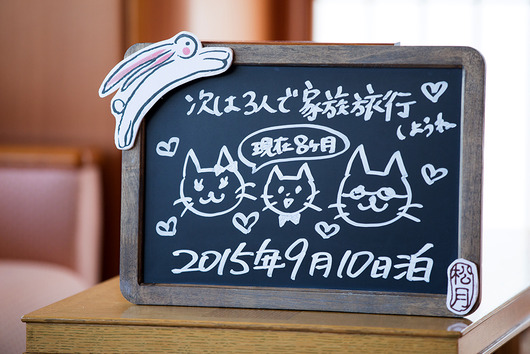 次は3人で家族旅行
しようね
現在8ヶ月
2015年9月10日泊
松月